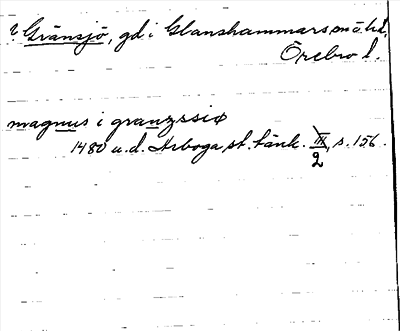 ? Gränsjö, gd i Glanshammars sn o hd,
Örebro l.
magnus i granzssiø
1480 u.d. Arboga st. tänk. III/2, s. 156.